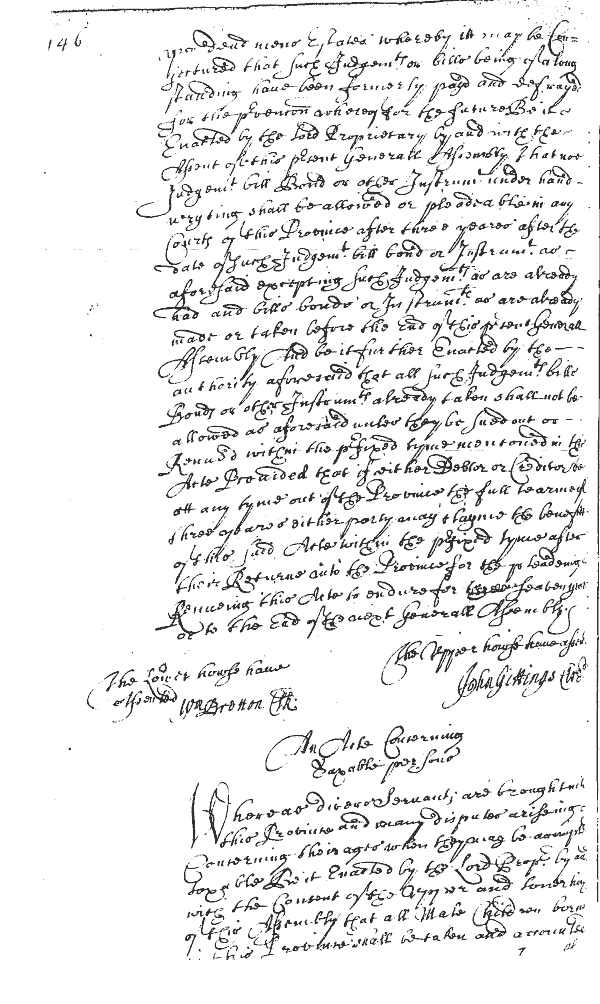 146
upon dead mens Estates whereby itt may be Con=
jectured that such Judgemt. or bills being of a long
standing have been formerly payd and defrayed
for the prvencon whereof for the future Be it
Enacted by the Lord Proprietary by and with the
Assent of this prsent Generall Assembly That noe
Judgemt. bill Bond or other Instrumt. under hand-
wryting shall be allowed or pleadeable in any
Courts of this Province after three yeares after the
date of such Judgemt. bill bond or Instrumt. as
aforesaid excepting such Judgemts. as are already
had and bills bonds or Instrumts. as are already
made or taken before the End of this prsent Generall
Assembly And be it further Enacted by the
authority aforesaid that all such Judgemts. bills
Bonds or other Instrumts. already taken shall not be
allowed as aforesaid unles they be sued out or
Renued within the prfixed tyme mentioned in this
Acte Provided that if either Debtor or Creditor be
att any tyme out of the Province the full tearme of
three yeares either party may clayme the benefitt
of this said Acte within the prfixed tyme after
their Returne into the Province for the pleading
Renueing this Acte to endure for three seaven yeares
or to the End of the next Generall Assembly
The Lower house have
assented Wm Bretton Clk.
The Upper house have assen
John Gittings Clk
An Acte Concerning
Taxable persons
Whereas divers Servants are brought into
this Province and many disputes ariseing
Concerning their ages when they may be accompted
taxable Be it Enacted by the Lord Propr. by and
with the Consent of the Upper and lower house
of this Assembly that all Male Children borne
in this Province shall be taken and accounted